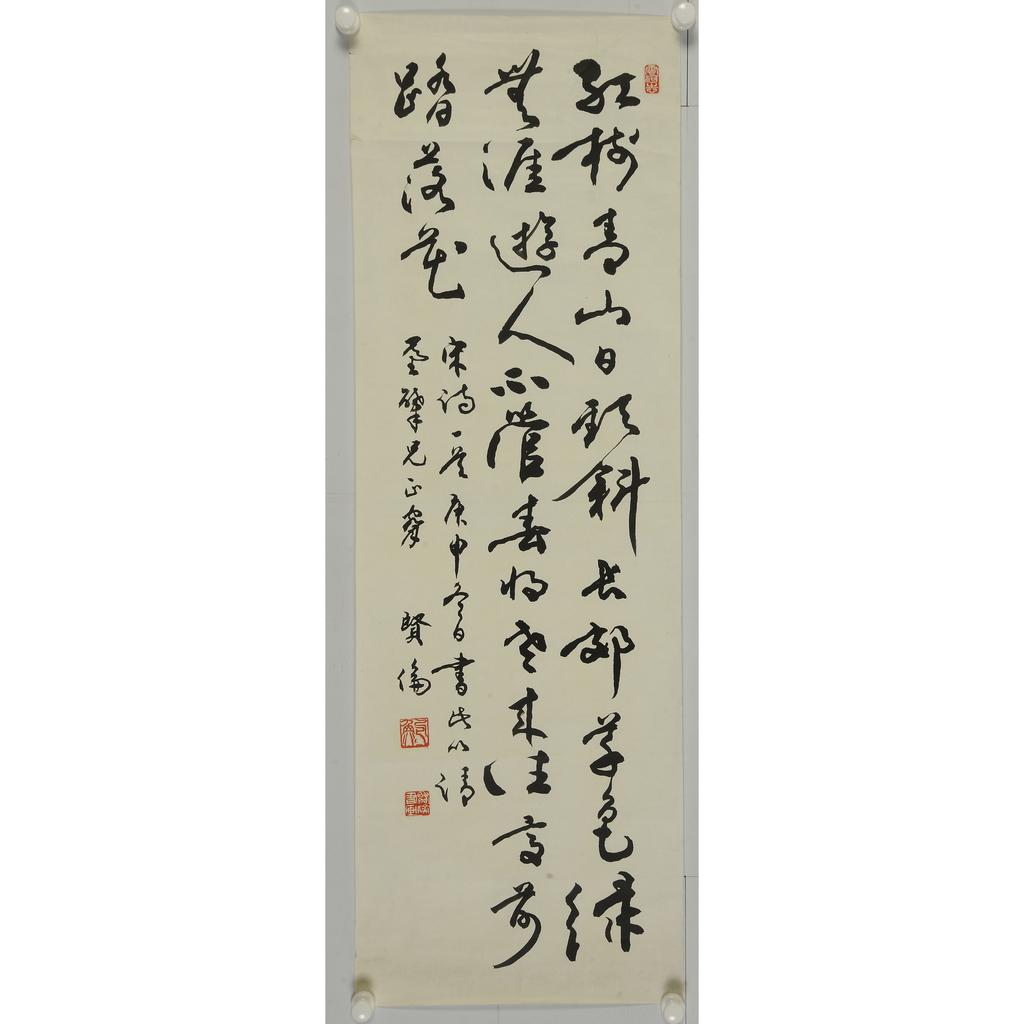 紅樹青山日欲斜長郊草色綠
無涯遊人不管春將老來往亭前
踏落花
宋詩一首庚申冬日書此以請
兄正搴
賢倫